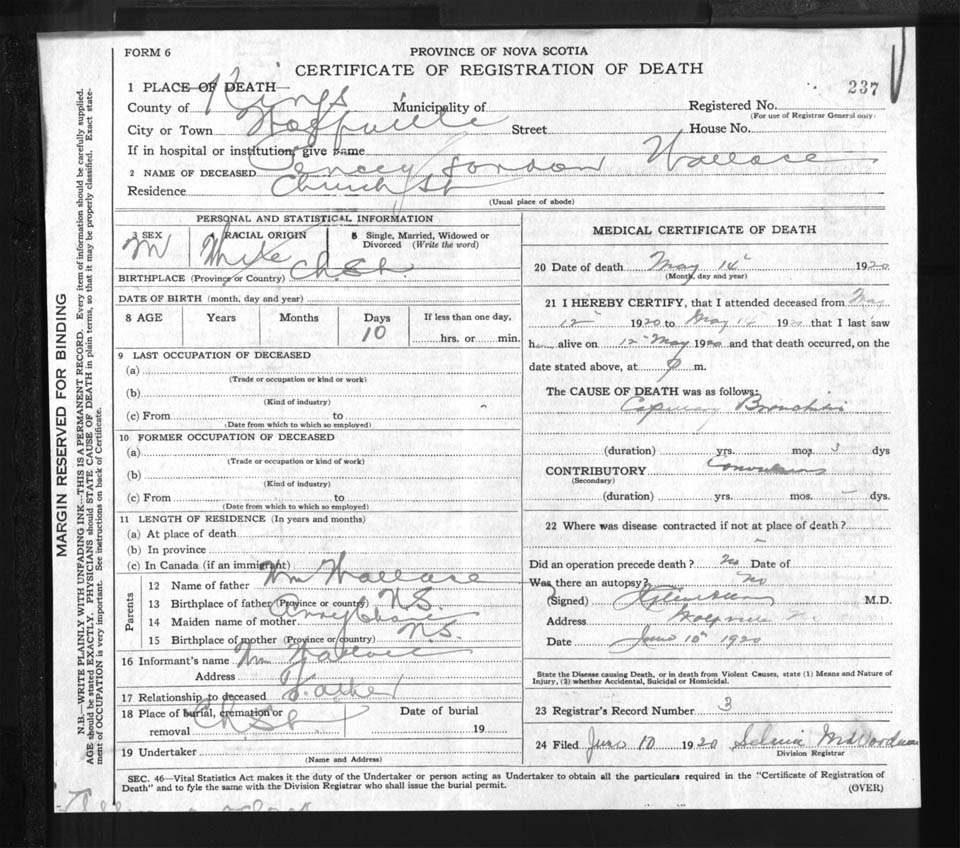 FORM 6
PROVINCE OF NOVA SCOTIA
CERTIFICATE OF REGISTRATION OF DEATH
237
1 PLACE OF DEATH—
County of Kings Municipality of Registered No.
(For use of Registrar General only)
City or Town Wolfville Street House No.
If in hospital or institution, give name
2 NAME OF DECEASED Gordon Wallace
Residence Church St
(Usual place of abode)
PERSONAL AND STATISTICAL INFORMATION
3 SEX 4 RACIAL ORIGIN 5 Single, Married, Widowed or Divorced (Write the word)
M White
BIRTHPLACE (Province or Country) Ch St
DATE OF BIRTH (month, day and year)
8 AGE Years Months Days If less than one day,
10 hrs. or min.
9 LAST OCCUPATION OF DECEASED
(a)
(Trade or occupation or kind or work)
(b)
(Kind of industry)
(c) From to
(Date from which to which so employed)
10 FORMER OCCUPATION OF DECEASED
(a)
(Trade or occupation or kind of work)
(b)
(Kind of industry)
(c) From to
(Date from which to which so employed)
11 LENGTH OF RESIDENCE (In years and months)
(a) At place of death
(b) In province
(c) In Canada (if an immigrant)
Parents
12 Name of father Wm Wallace
13 Birthplace of father (Province or country) N.S.
14 Maiden name of mother Annie
15 Birthplace of mother (Province or country) N.S.
16 Informant's name Wm Wallace
Address
17 Relationship to deceased Father
18 Place of burial, cremation or Date of burial
removal Ch St 19
19 Undertaker
(Name and Address)
MEDICAL CERTIFICATE OF DEATH
20 Date of death May 14 1920
(Month, day and year)
21 I HEREBY CERTIFY, that I attended deceased from May
12 1920 to May 14 1920 that I last saw
h alive on 12 May 1920 and that death occurred, on the
date stated above, at m.
The CAUSE OF DEATH was as follows:
Capillary Bronchitis
(duration) yrs. mos. 3 dys
CONTRIBUTORY Convulsions
(Secondary)
(duration) yrs. mos. dys.
22 Where was disease contracted if not at place of death?
Did an operation precede death? No Date of
Was there an autopsy? No
(Signed) M.D.
Address Wolfville N.
Date June 10th 1920
State the Disease causing Death, or in death from Violent Causes, state (1) Means and Nature of
Injury, (2) whether Accidental, Suicidal or Homicidal.
23 Registrar's Record Number 3
24 Filed June 10 1920
Division Registrar
SEC. 46—Vital Statistics Act makes it the duty of the Undertaker or person acting as Undertaker to obtain all the particulars required in the "Certificate of Registration of
Death" and to fyle the same with the Division Registrar who shall issue the burial permit.
(OVER)
MARGIN RESERVED FOR BINDING
N.B.—WRITE PLAINLY WITH UNFADING INK—THIS IS A PERMANENT RECORD. Every item of information should be carefully supplied.
AGE should be stated EXACTLY. PHYSICIANS should STATE CAUSE OF DEATH in plain terms, so that it may be properly classified. Exact state-
ment of OCCUPATION is very important. See instructions on back of Certificate.